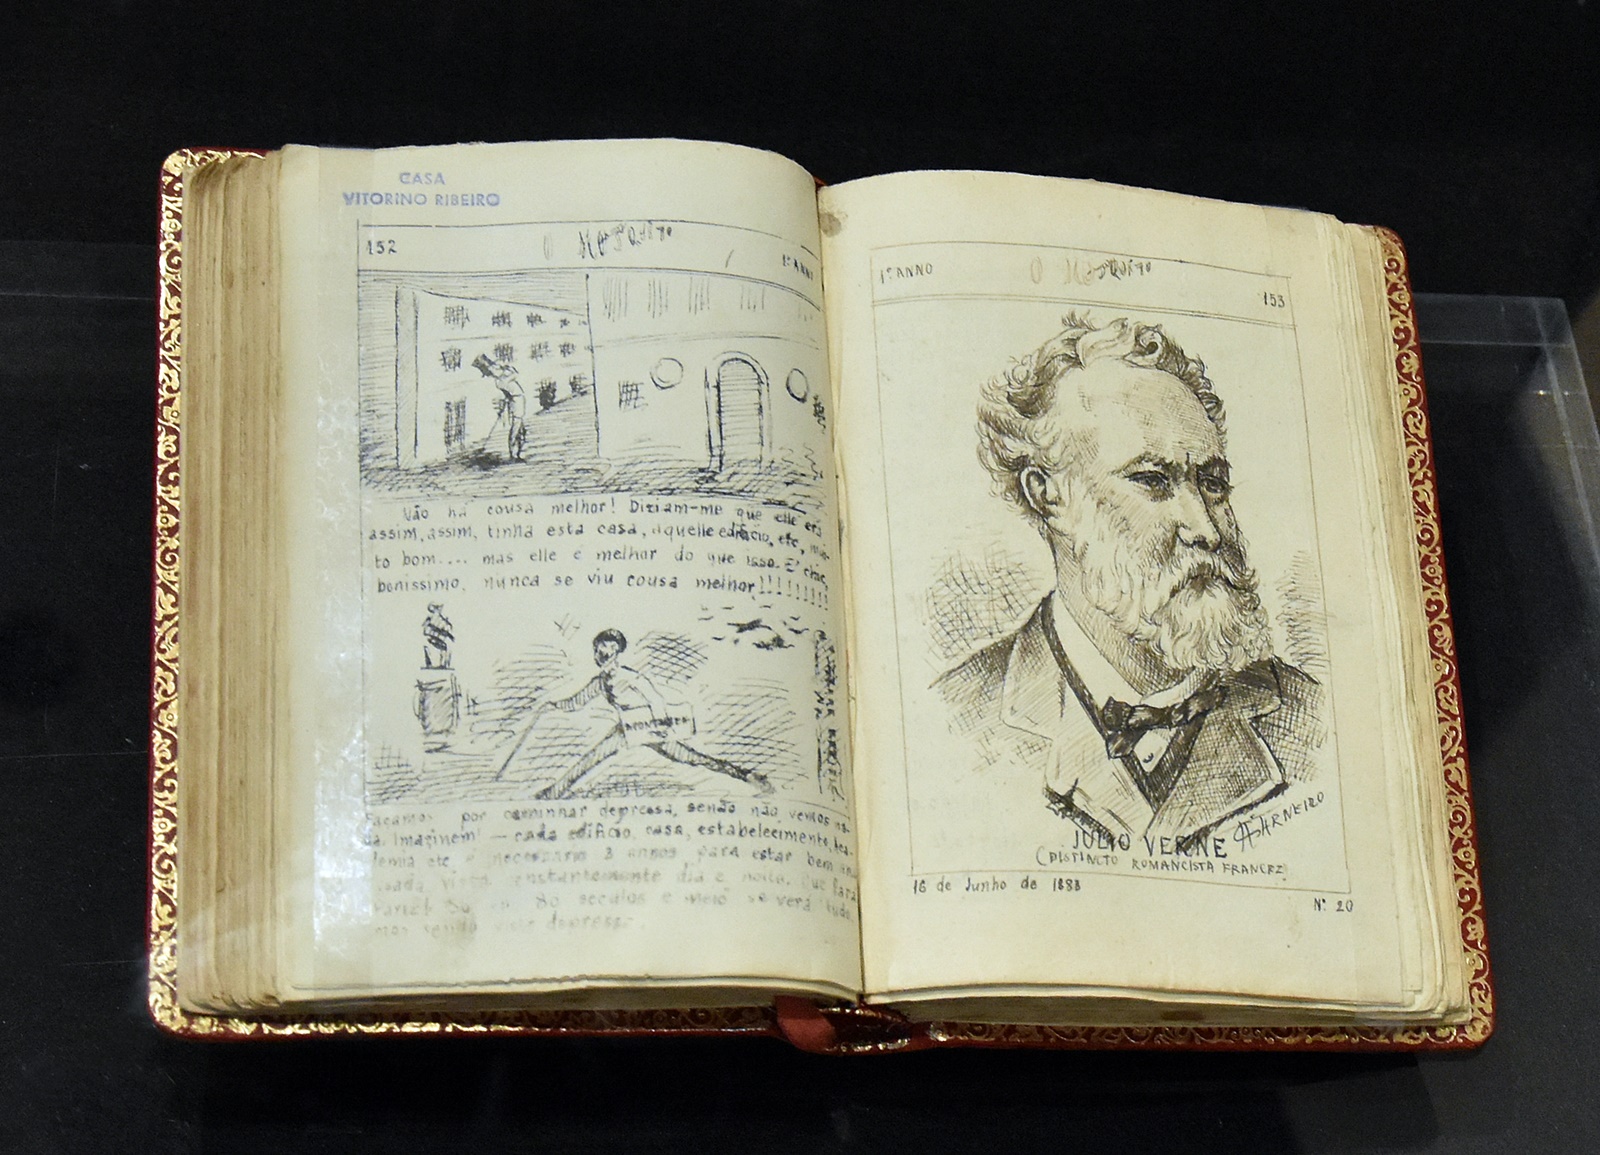 CASA
VITORINO RIBEIRO
152
O MOSQUITO
1º ANNO
Não há cousa melhor! Diziam-me que elle era
assim, assim, tinha esta casa, aquelle edificio, etc, mui-
to bom.... mas elle é melhor do que isso. E' chic,
bonissimo, nunca se viu cousa melhor!!!!!!!!!
Façamos por caminhar depressa, senão não vemos na-
da. Imaginem! — cada edificio, casa, estabelecimento, 
etc é necessario 3 annos para estar bem
vista constantemente dia e noite. Que
80 seculos e meio se verá tudo
depressa.
1º ANNO
O MOSQUITO
153
CARNEIRO
JULIO VERNE
(DISTINCTO ROMANCISTA FRANCEZ)
16 de Junho de 1883
Nº 20